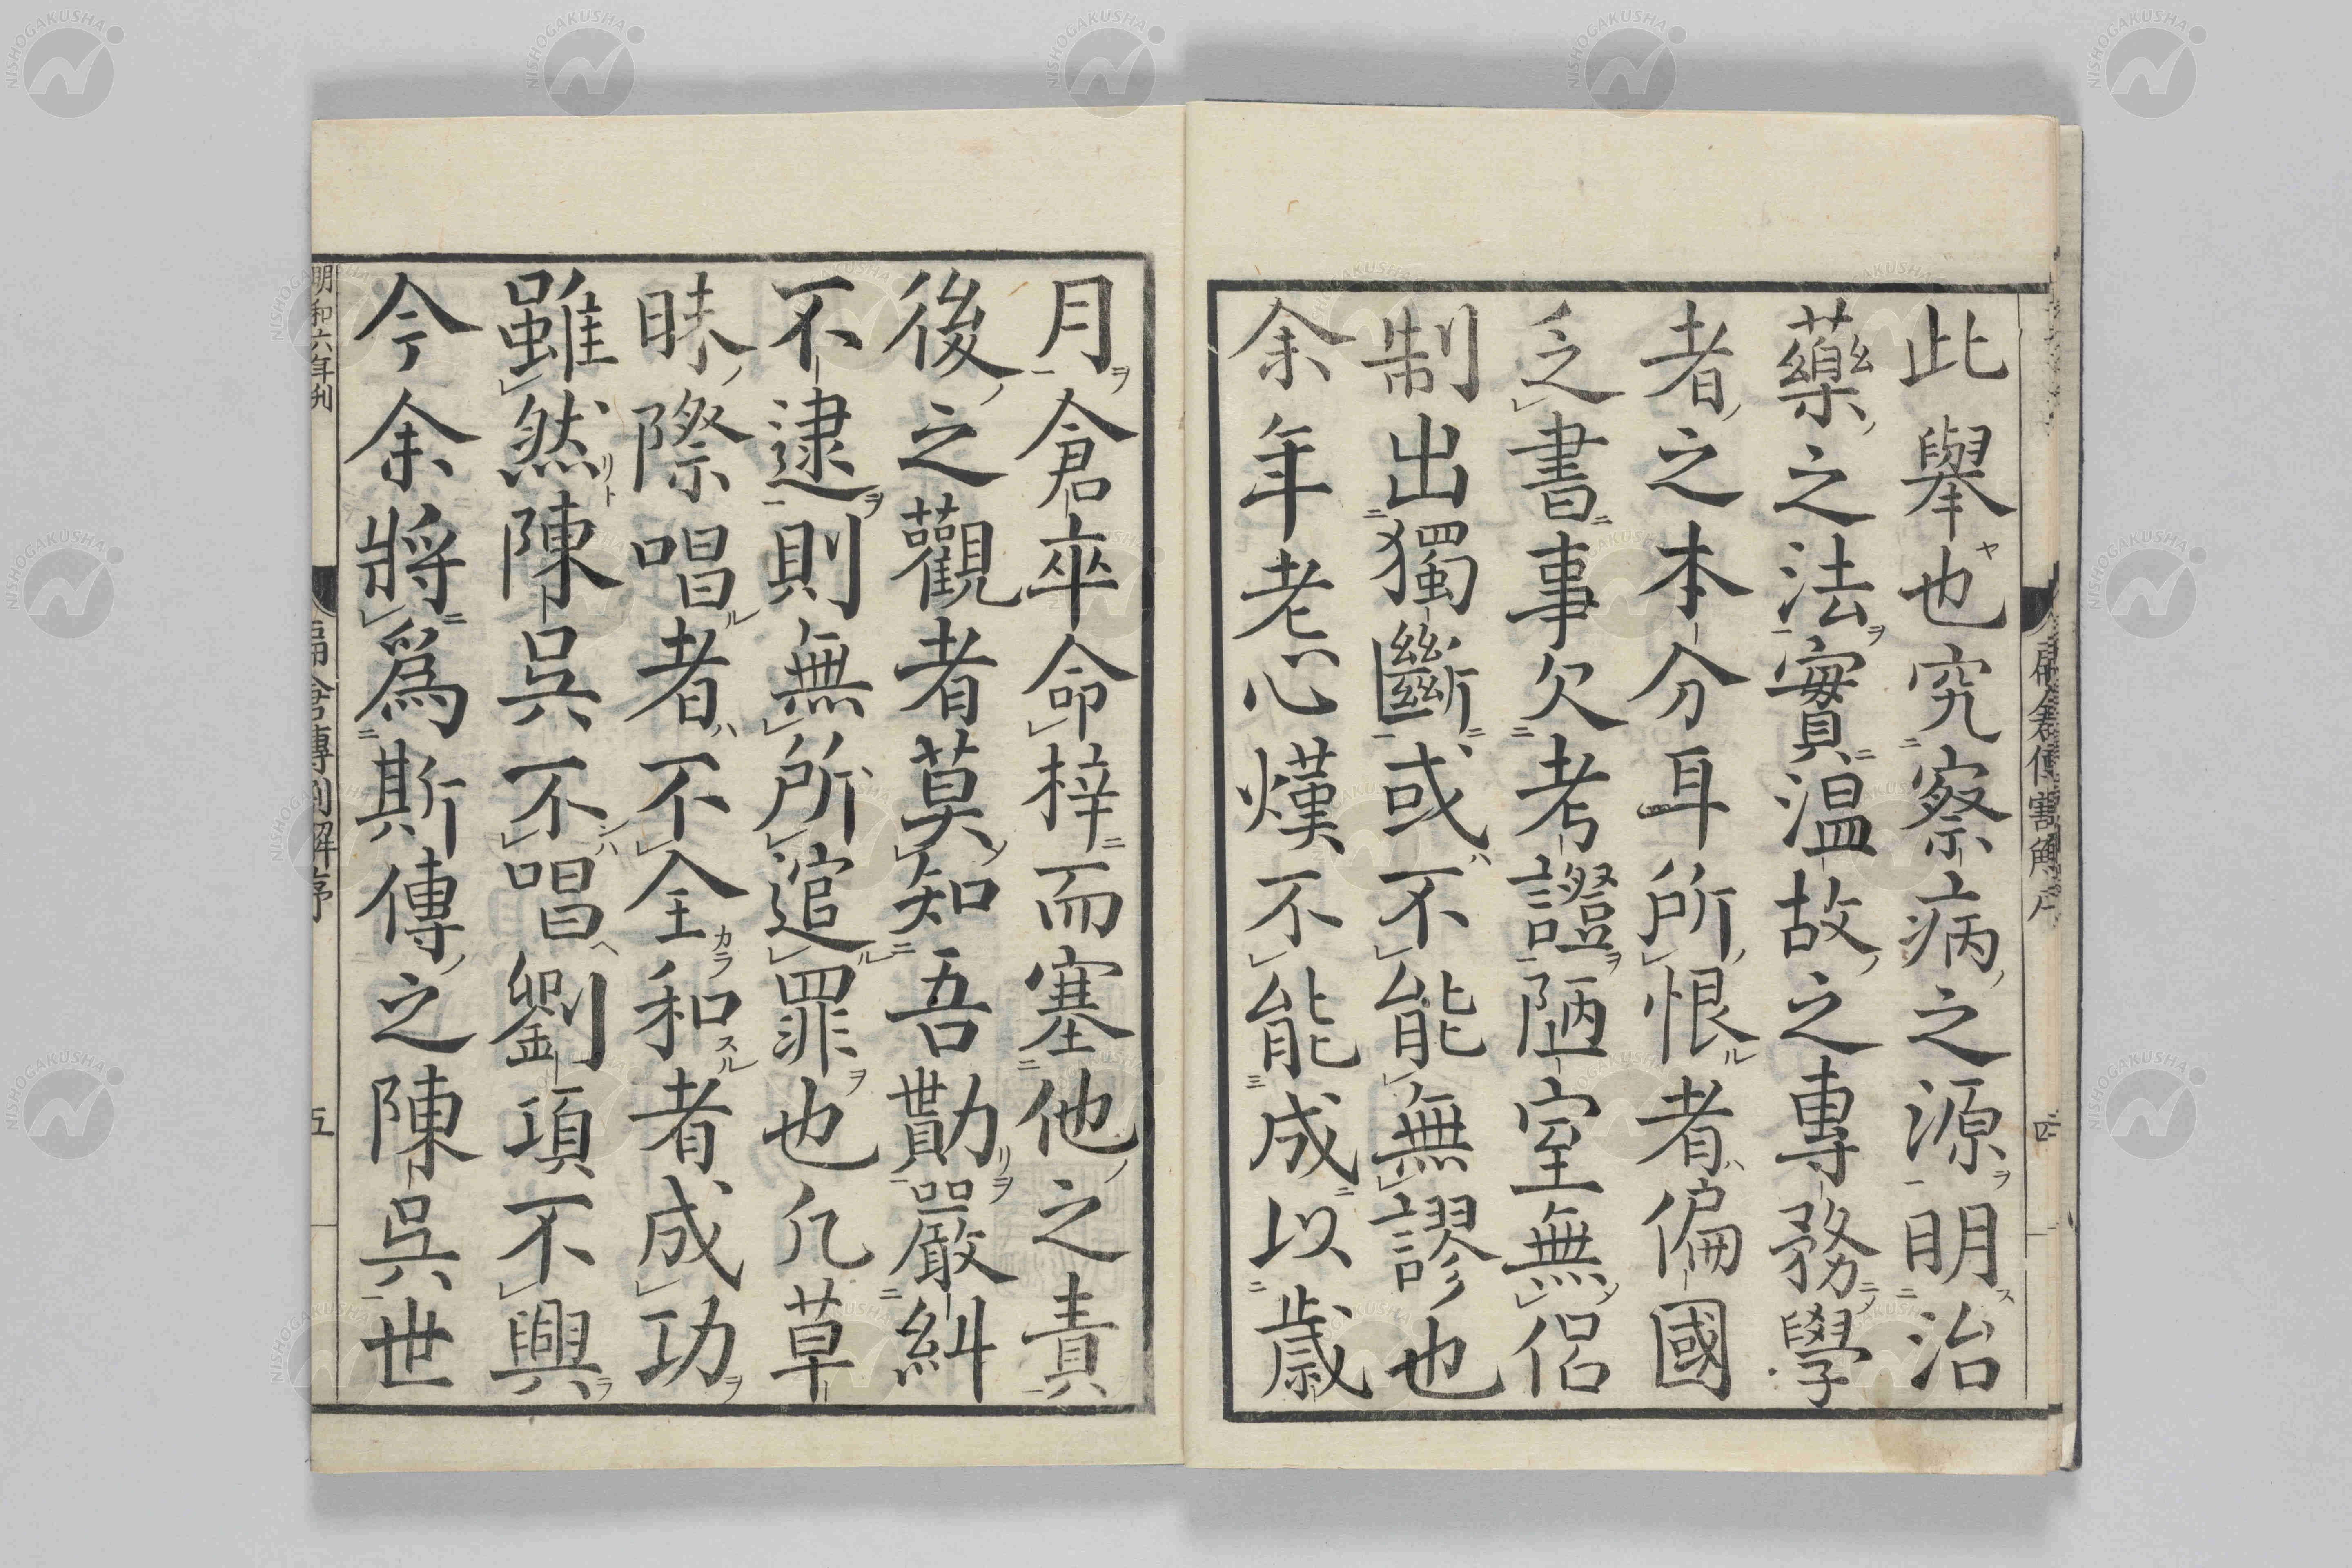 此舉也究察病之源明治
藥之法實温故之專務學
者之本分耳所恨者偏國
乏書事欠考證陋室無侶
制出獨斷或不能無謬也
余年老心熯不能成以歳
月倉卒命梓而塞他之責
後之觀者莫知吾勩嚴糾
不逮則無所逭罪也凡草
昧際唱者不全和者成功
雖然陳呉不唱劉項不興
今余將爲斯傳之陳呉世
明和六年刊
扁倉傳割解序
五
四
NISHOGAKUSHA